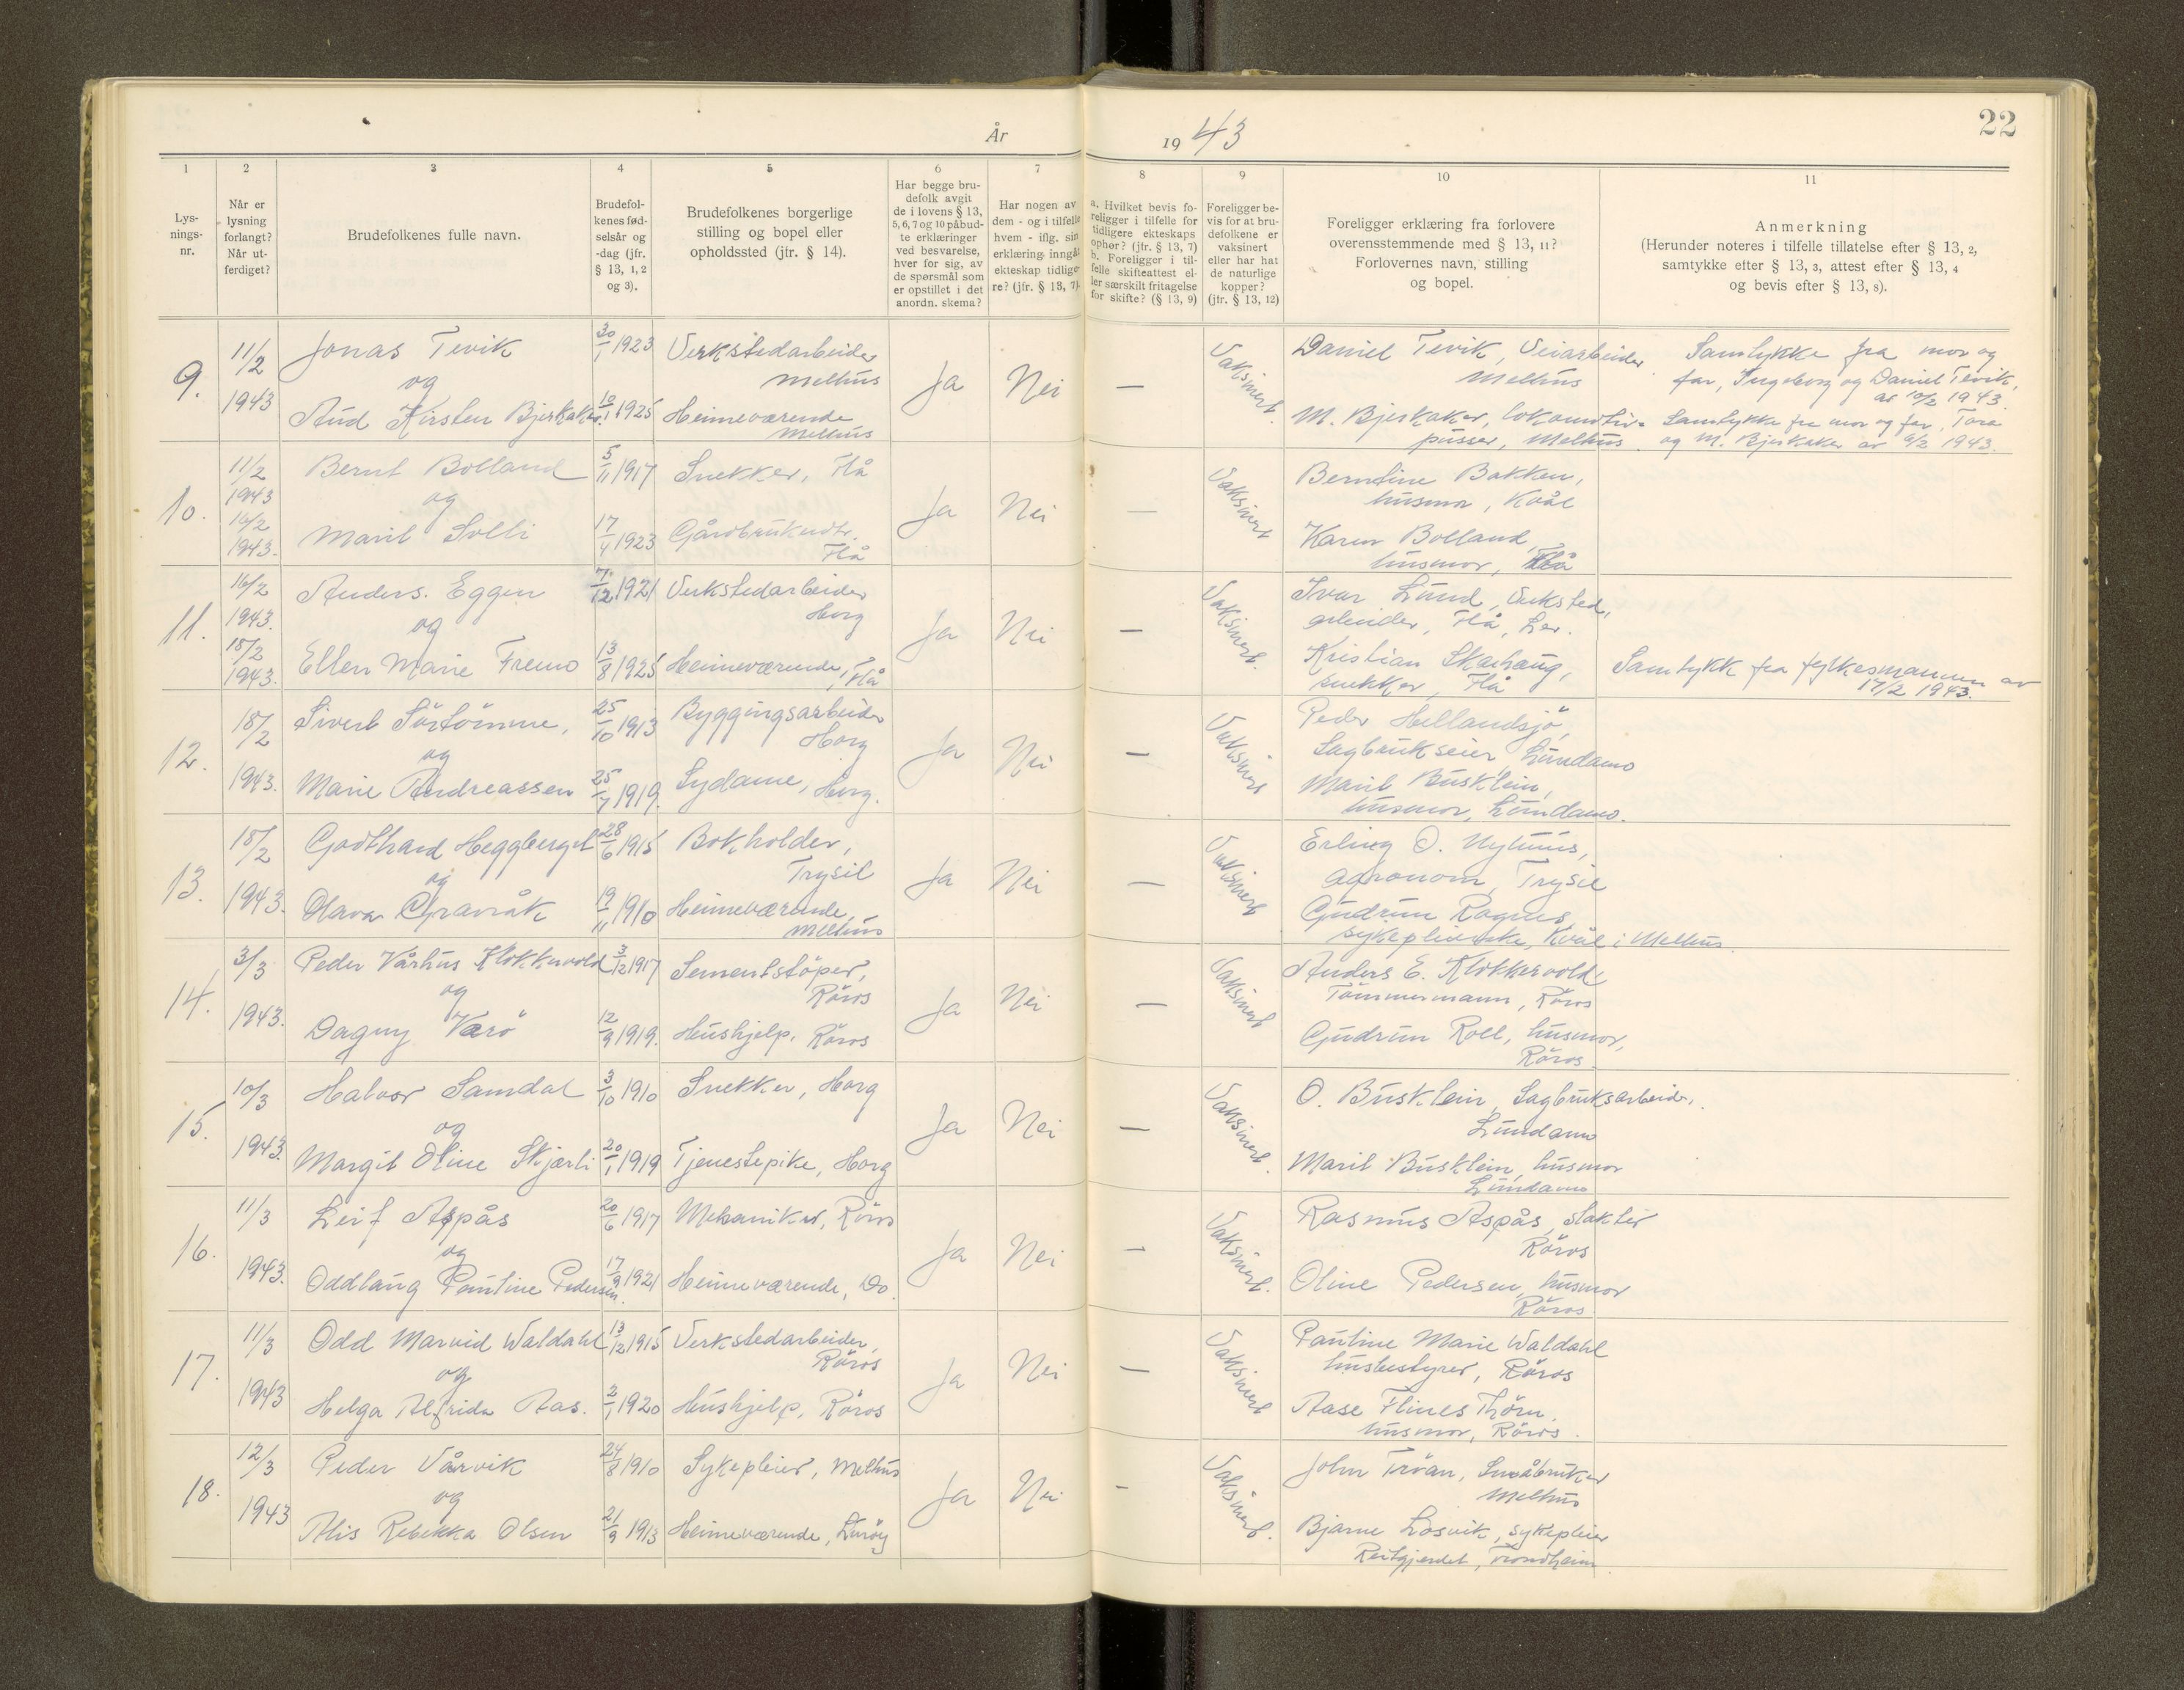 År 19 43
22
1
2
3
4
5
6
7
8
9
10
11
Lys-
nings-
nr.
Når er
lysning
forlangt?
Når ut-
ferdiget?
Brudefolkenes fulle navn.
Brudefol-
kenes fød-
selsår og
-dag (jfr.
§ 13, 1, 2
og 3).
Brudefolkenes borgerlige
stilling og bopel eller
opholdssted (jfr. § 14).
Har begge bru-
defolk avgit
de i lovens § 13,
5, 6, 7 og 10 påbud-
te erklæringer
ved besvarelse,
hver for sig, av
de spørsmål som
er opstillet i det
anordn. skema?
Har nogen av
dem - og i tilfelle
hvem - iflg. sin
erklæring inngåt
ekteskap tidlige-
re? (jfr. § 13, 7).
a. Hvilket bevis fo-
religger i tilfelle for
tidligere ekteskaps
ophør? (jfr. § 13, 7)
b. Foreligger i til-
felle skifteattest el-
ler særskilt fritagelse
for skifte? (§ 13, 9)
Foreligger be-
vis for at bru-
defolkene er
vaksinert
eller har hat
de naturlige
kopper?
(jfr. § 13, 12)
Foreligger erklæring fra forlovere
overensstemmende med § 13, 11?
Forlovernes navn, stilling
og bopel.
Anmerkning
(Herunder noteres i tilfelle tillatelse efter § 13, 2,
samtykke efter § 13, 3, attest efter § 13, 4
og bevis efter § 13, 8).
9.
11/2
1943
Jonas Tevik
og
Aud Kirsten Bjerkaker
30/1 1923
10/11 1925
Verkstedarbeider
Melhus
Heimeværende
Melhus
Ja
Nei
—
Vaksinert.
Daniel Tevik, Veiarbeider
Melhus
M. Bjerkaker, lokomotiv-
pusser, Melhus.
Samtykke fra mor og
far, Ingeborg og Daniel Tevik,
av 10/2 1943.
Samtykke fra mor og far, Tora
og M. Bjerkaker av 9/2 1943.
10.
11/2
1943
16/2
1943.
Bernt Bolland
og
Marit Solli
5/11 1917
17/4 1923
Snekker, Flå
Gårdbrukerdtr.
Flå
Ja
Nei
—
Vaksinert
Berntine Bakken,
husmor, Kvål
Karen Bolland,
husmor, Flå
11.
16/2
1943.
18/2
1943.
Anders. Eggen
og
Ellen Marie Fremo
7/12 1921
13/8 1925
Verkstedarbeider
Horg
Heimeværende, Flå
Ja
Nei
—
Vaksinert.
Ivar Lund, Verksted,
arbeider, Flå, Ler.
Kristian Skarhaug,
snekker, Flå
Samtykk fra fylkesmannen av
17/2 1943.
12.
18/2
1943.
Sivert Sørtømme,
og
Marie Andreassen
25/10 1913
25/7 1919.
Byggingsarbeider
Horg
Sydame, Horg.
Ja
Nei
—
Vaksinert
Peder Hellandsjø,
Sagbrukseier, Lundamo
Marit Busklein,
husmor, Lundamo.
13.
18/2
1943.
Godthard Heggberget
og
Olava Gravråk
28/6 1915
19/11 1910
Bokholder,
Trysil
Heimeværende,
Melhus
Ja
Nei
—
Vaksinert
Erling O. Nyhuus,
agronom, Trysil
Gudrun Rognes,
sykepleierske, Kvål i Melhus.
14.
3/3
1943.
Peder Vårhus Klokkervold
og
Dagny Værø
3/12 1917
12/9 1919.
Sementstøper,
Røros
Hushjelp, Røros
Ja
Nei
—
Vaksinert
Anders E. Klokkervold
Tømmermann, Røros
Gudrun Roll, husmor,
Røros
15.
10/3
1943.
Halvor Samdal
og
Margit Oline Skjærli
3/10 1910
20/1 1919
Snekker, Horg
Tjenestepike, Horg
Ja
Nei
—
Vaksinert.
O. Busklein, Sagbruksarbeider,
Lundamo
Marit Busklein, husmor
Lundamo
16.
11/3
1943.
Leif Aspås
og
Oddlaug Pauline Pedersen.
20/6 1917
17/9 1921
Mekaniker, Røros
Heimeværende, Do.
Ja
Nei
—
Vaksinert.
Rasmus Aspås, slakter
Røros
Oline Pedersen, husmor
Røros
17.
11/3
1943
Odd Marvid Waldahl
og
Helga Alfrida Aas.
13/12 1915
2/1 1920
Verkstedarbeider,
Røros
Hushjelp, Røros
Ja
Nei
—
Vaksinert
Pauline Marie Waldahl
husbestyrer, Røros
Aase Flines Thørn,
husmor, Røros.
18.
12/3
1943
Peder Vårvik
og
Alis Rebekka Olsen
24/8 1910
21/9 1913
Sykepleier, Melhus
Heimeværende, Lurøy
Ja
Nei
-
Vaksinert.
John Trøan, Småbruker
Melhus
Bjarne Losvik, sykepleier
Reitgjerdet, Trondheim